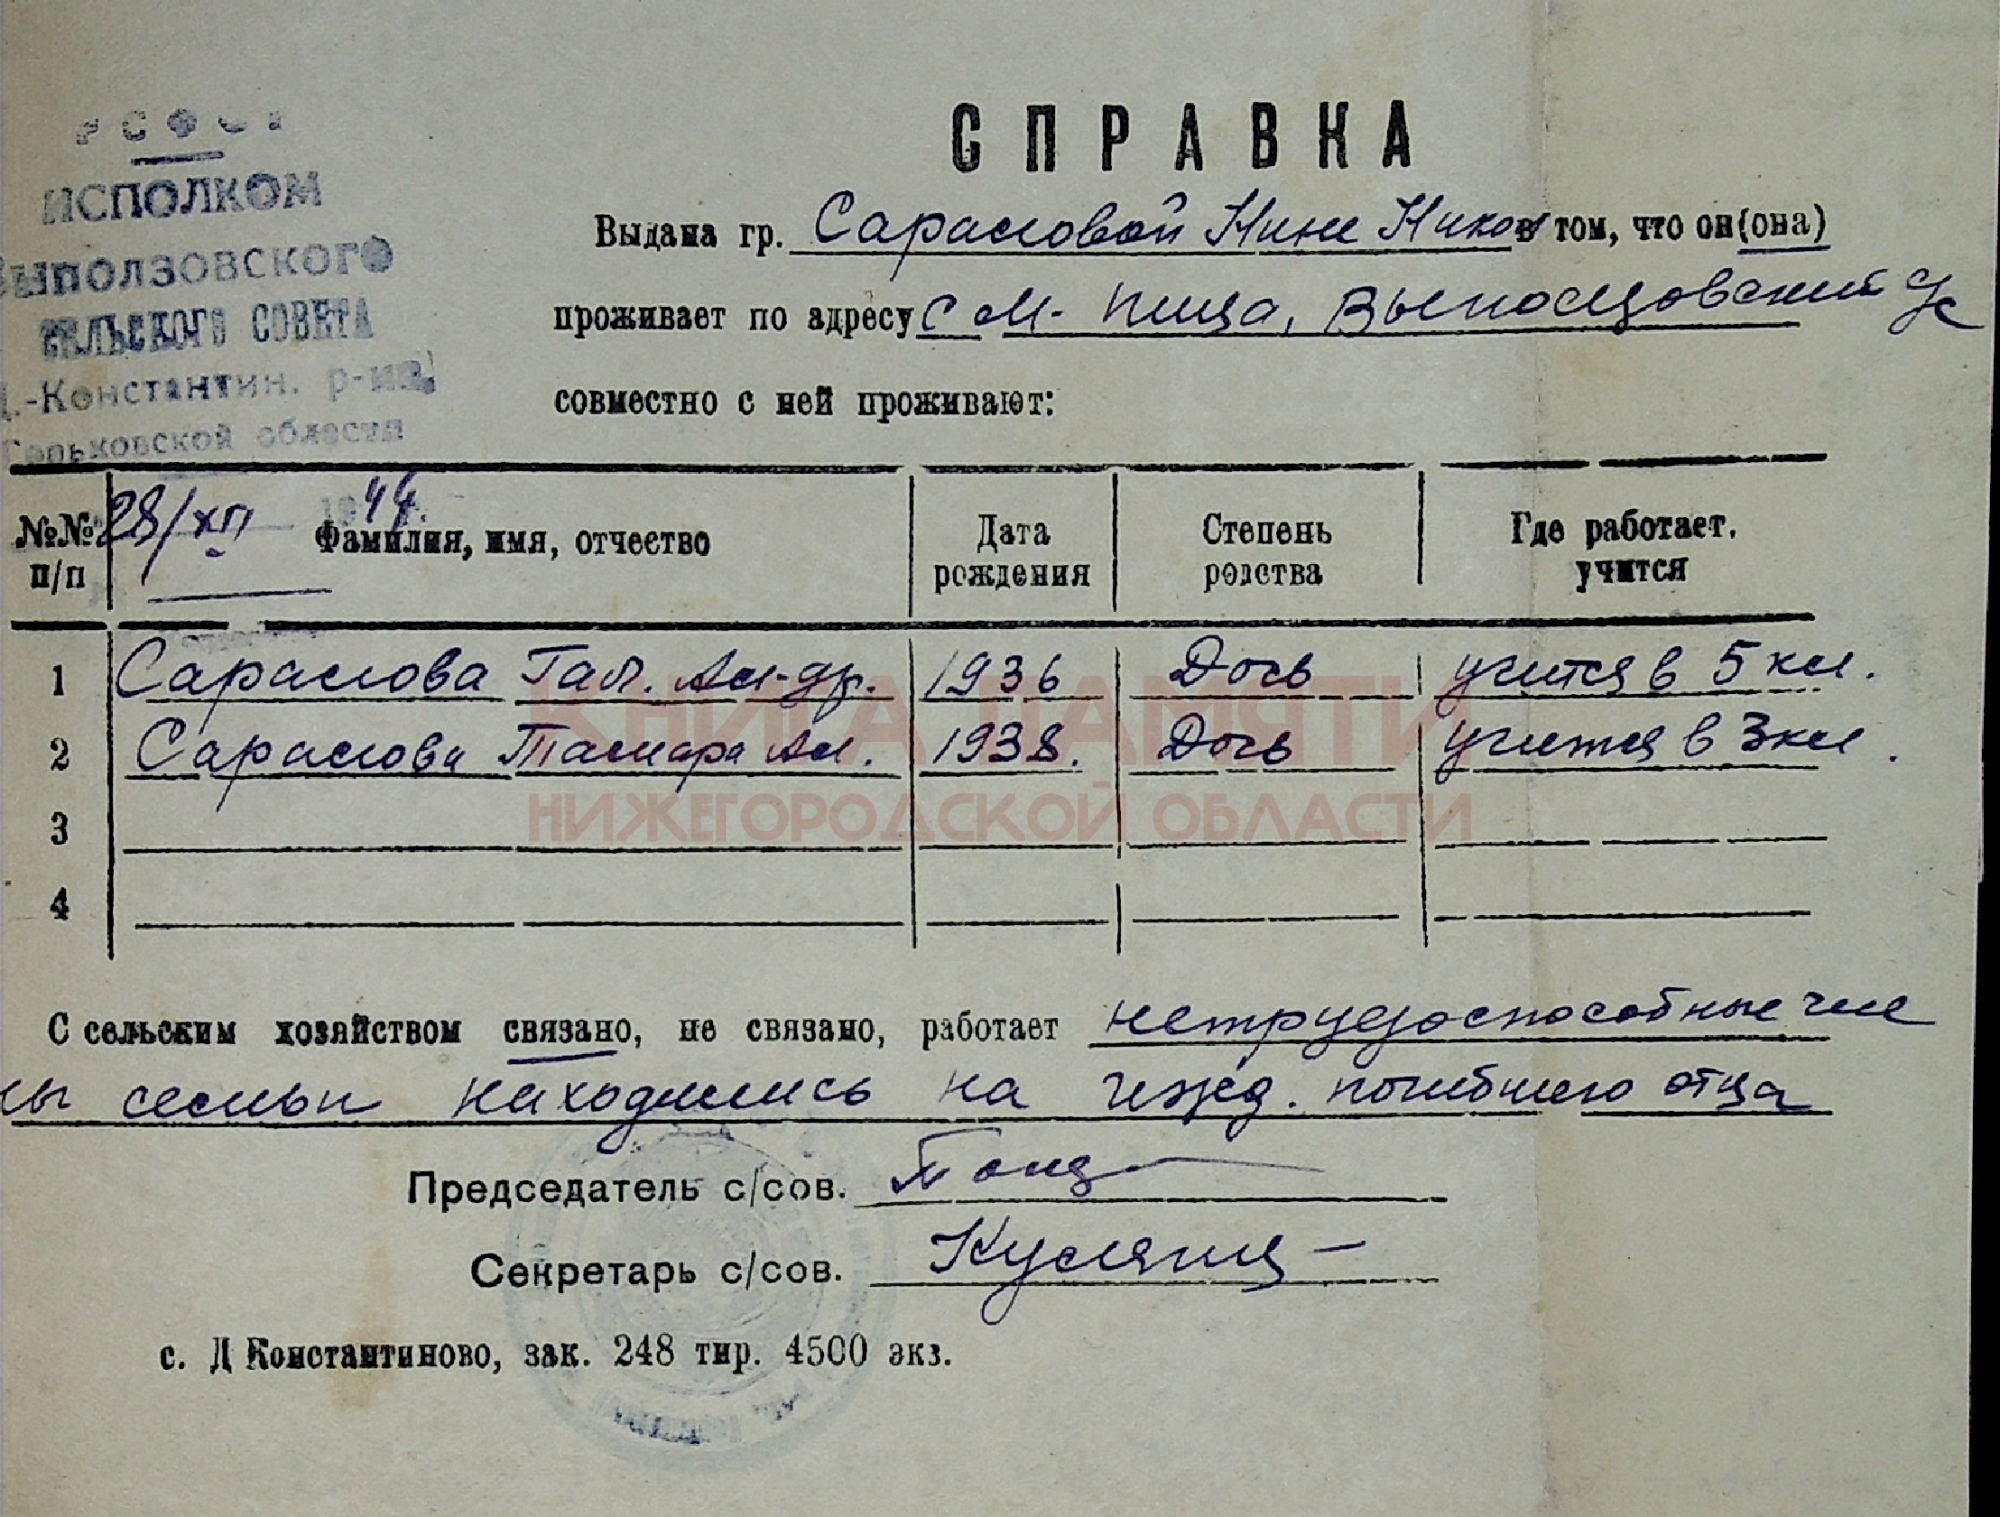 РСФСР
ИСПОЛКОМ
Выползовского
СЕЛЬСКОГО СОВЕТА
Д.-Константин. р-на
Горьковской области
28/XII 1944.
СПРАВКА
Выдана гр. Сарасловой Нине Никол в том, что он(она)
проживает по адресу с М- Пица, Выползовский с/с
совместно с ней проживают:
№№ п/п Фамилия, имя, отчество Дата рождения Степень родства Где работает. учится
1 Сараслова Гал. Ал-др. 1936 Дочь учится в 5 кл.
2 Сараслова Тамара Ал. 1938. Дочь учится в 3 кл.
3
4
КНИГА ПАМЯТИ
НИЖЕГОРОДСКОЙ ОБЛАСТИ
С сельским хозяйством связано, не связано, работает нетрудоспособные чле
ны семьи находились на ижд. погибшего отца
Председатель с/сов.
Секретарь с/сов.
с. Д Константиново, зак. 248 тир. 4500 экз.